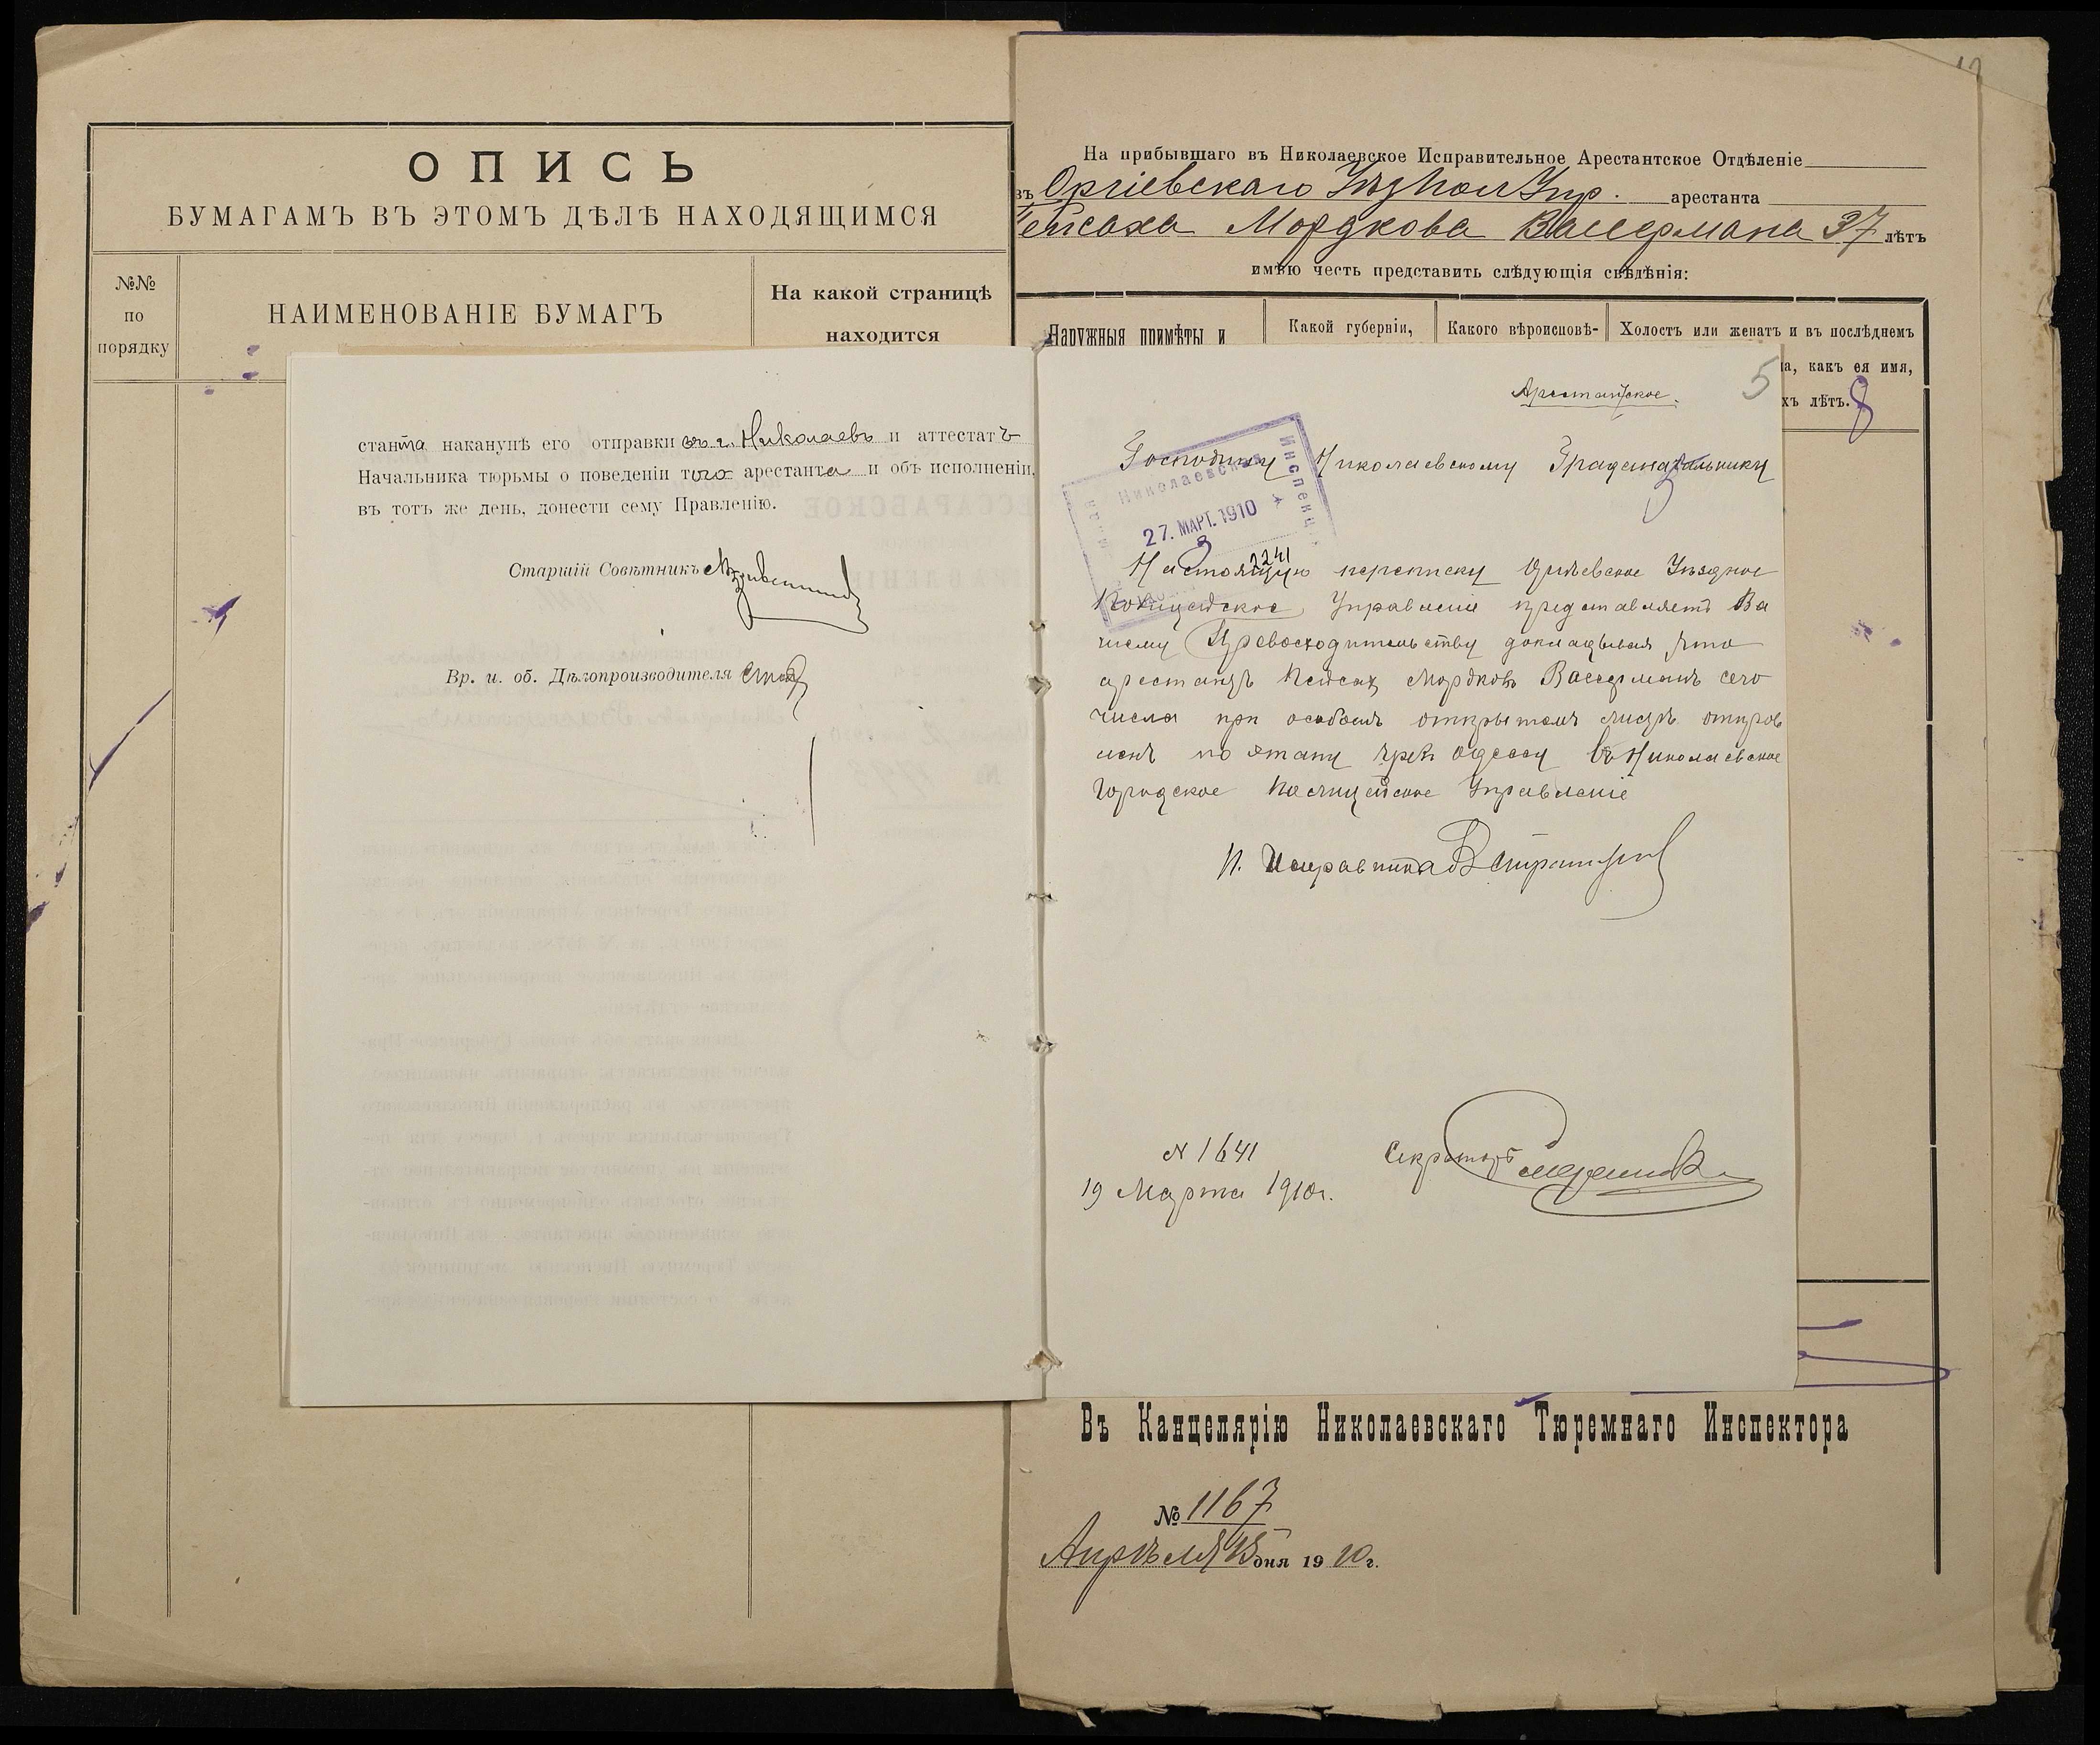 ОПИСЬ
БУМАГАМЪ ВЪ ЭТОМЪ ДѢЛѢ НАХОДЯЩИМСЯ
№№
по
порядку
НАИМЕНОВАНІЕ БУМАГЪ
На какой страницѣ
находится
На прибывшаго въ Николаевское Исправительное Арестантское Отдѣленіе
въ Оргіевскаго Уѣзднол Упр. арестанта
ейсаха Мордкова Вассермана 37 лѣтъ
имѣю честь представить слѣдующія свѣдѣнія:
Наружныя примѣты и
Какой губерніи,
Какого вѣроисповѣ-
Холостъ или женатъ и въ послѣднемъ
на, какъ ея имя,
хъ лѣтъ.
8
станта наканунѣ его отправки въ г. Николаевъ и аттестатъ
Начальника тюрьмы о поведеніи того арестанта и объ исполненіи,
въ тотъ же день, донести сему Правленію.
Старшій Совѣтникъ
Вр. и. об. Дѣлопроизводителя
5
Арестантское.
Господину Николаевскому Градоначальнику
Николаевская
Инспекц
27. МАРТ. 1910
2241
Настоящую переписку Оргѣевское Уѣздное
Полицейское Управленіе представляетъ Ва
шему Превосходительству докладывая, что
арестантъ Пейсах Мордковъ Вассерманъ сего
числа при особомъ открытомъ листѣ отправ
ленъ по этапу чрезъ Одессу въ Николаевское
Городское Полицейское Управленіе
И. Исправника
N 1641
19 Марта 1910г.
Секретарь
Въ Канцелярію Николаевскаго Тюремнаго Инспектора
№ 1167
Апрѣля 15 дня 1910 г.